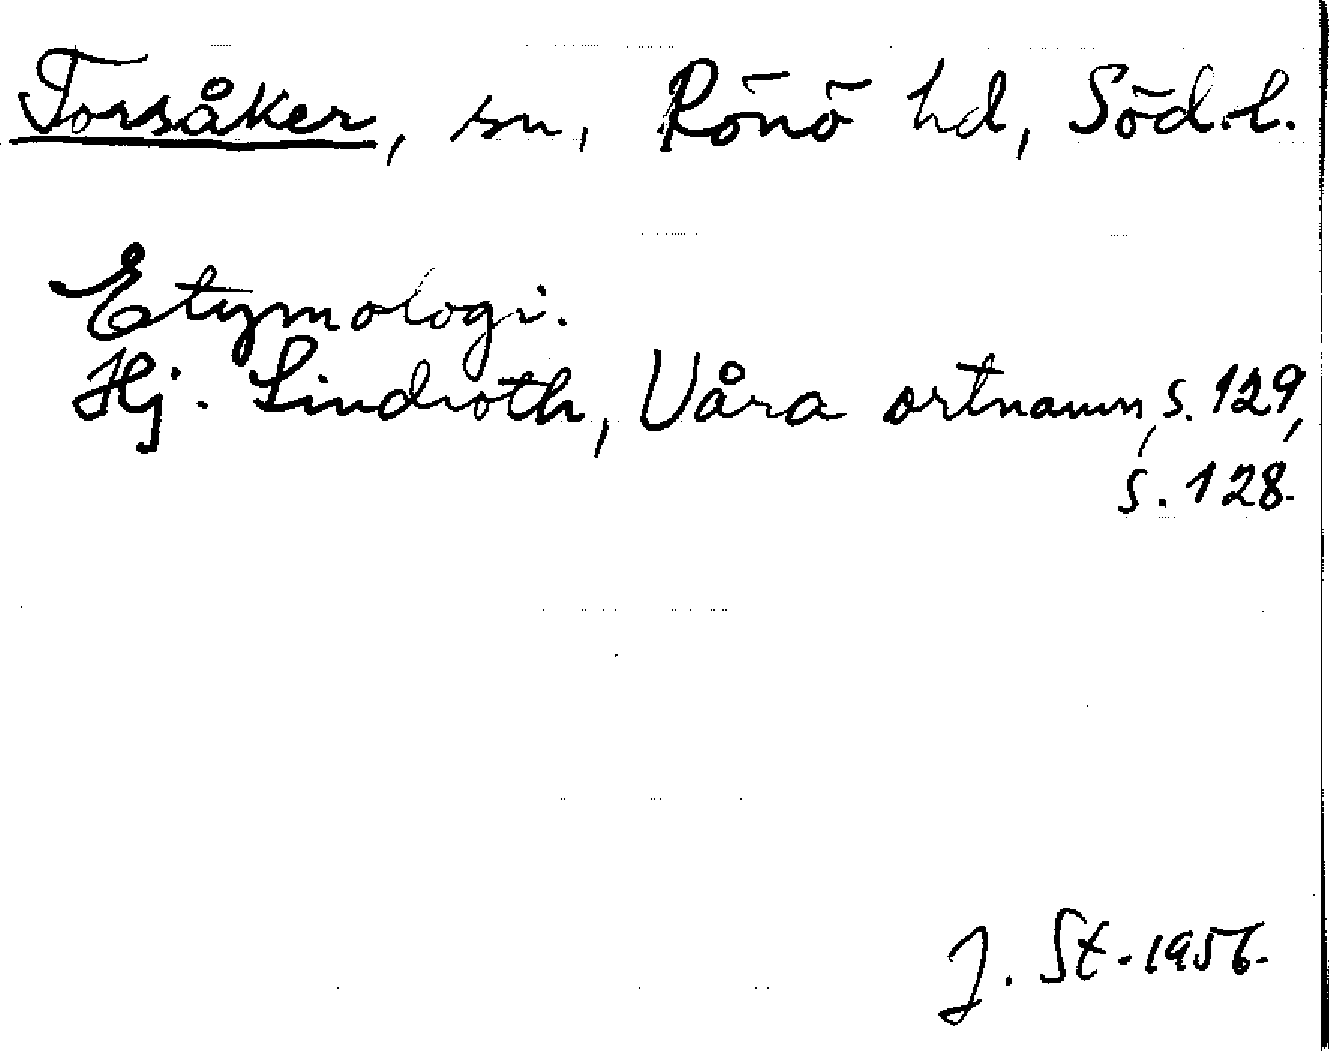 Torsåker, sn, Rönö hd, Söd.l.
Etymologi.
Hj. Lindroth, Våra ortnamn, s. 129,
s. 128.
J. St. 1956.